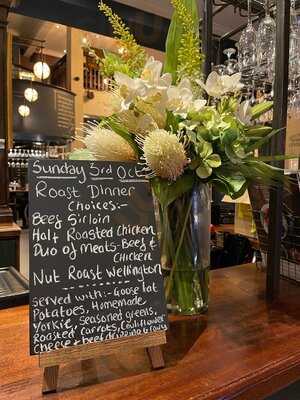 Sunday 3rd Oct
Roast Dinner
Choices:-
Beef Sirloin
Half Roasted Chicken
Duo of meats-Beef &
Chicken
Nut Roast Wellington
Served with:- Goose fat
Potatoes, Homemade
Yorkie, Seasoned greens,
Roasted Carrots, Cauliflower
Cheese & beef dripping Gravy